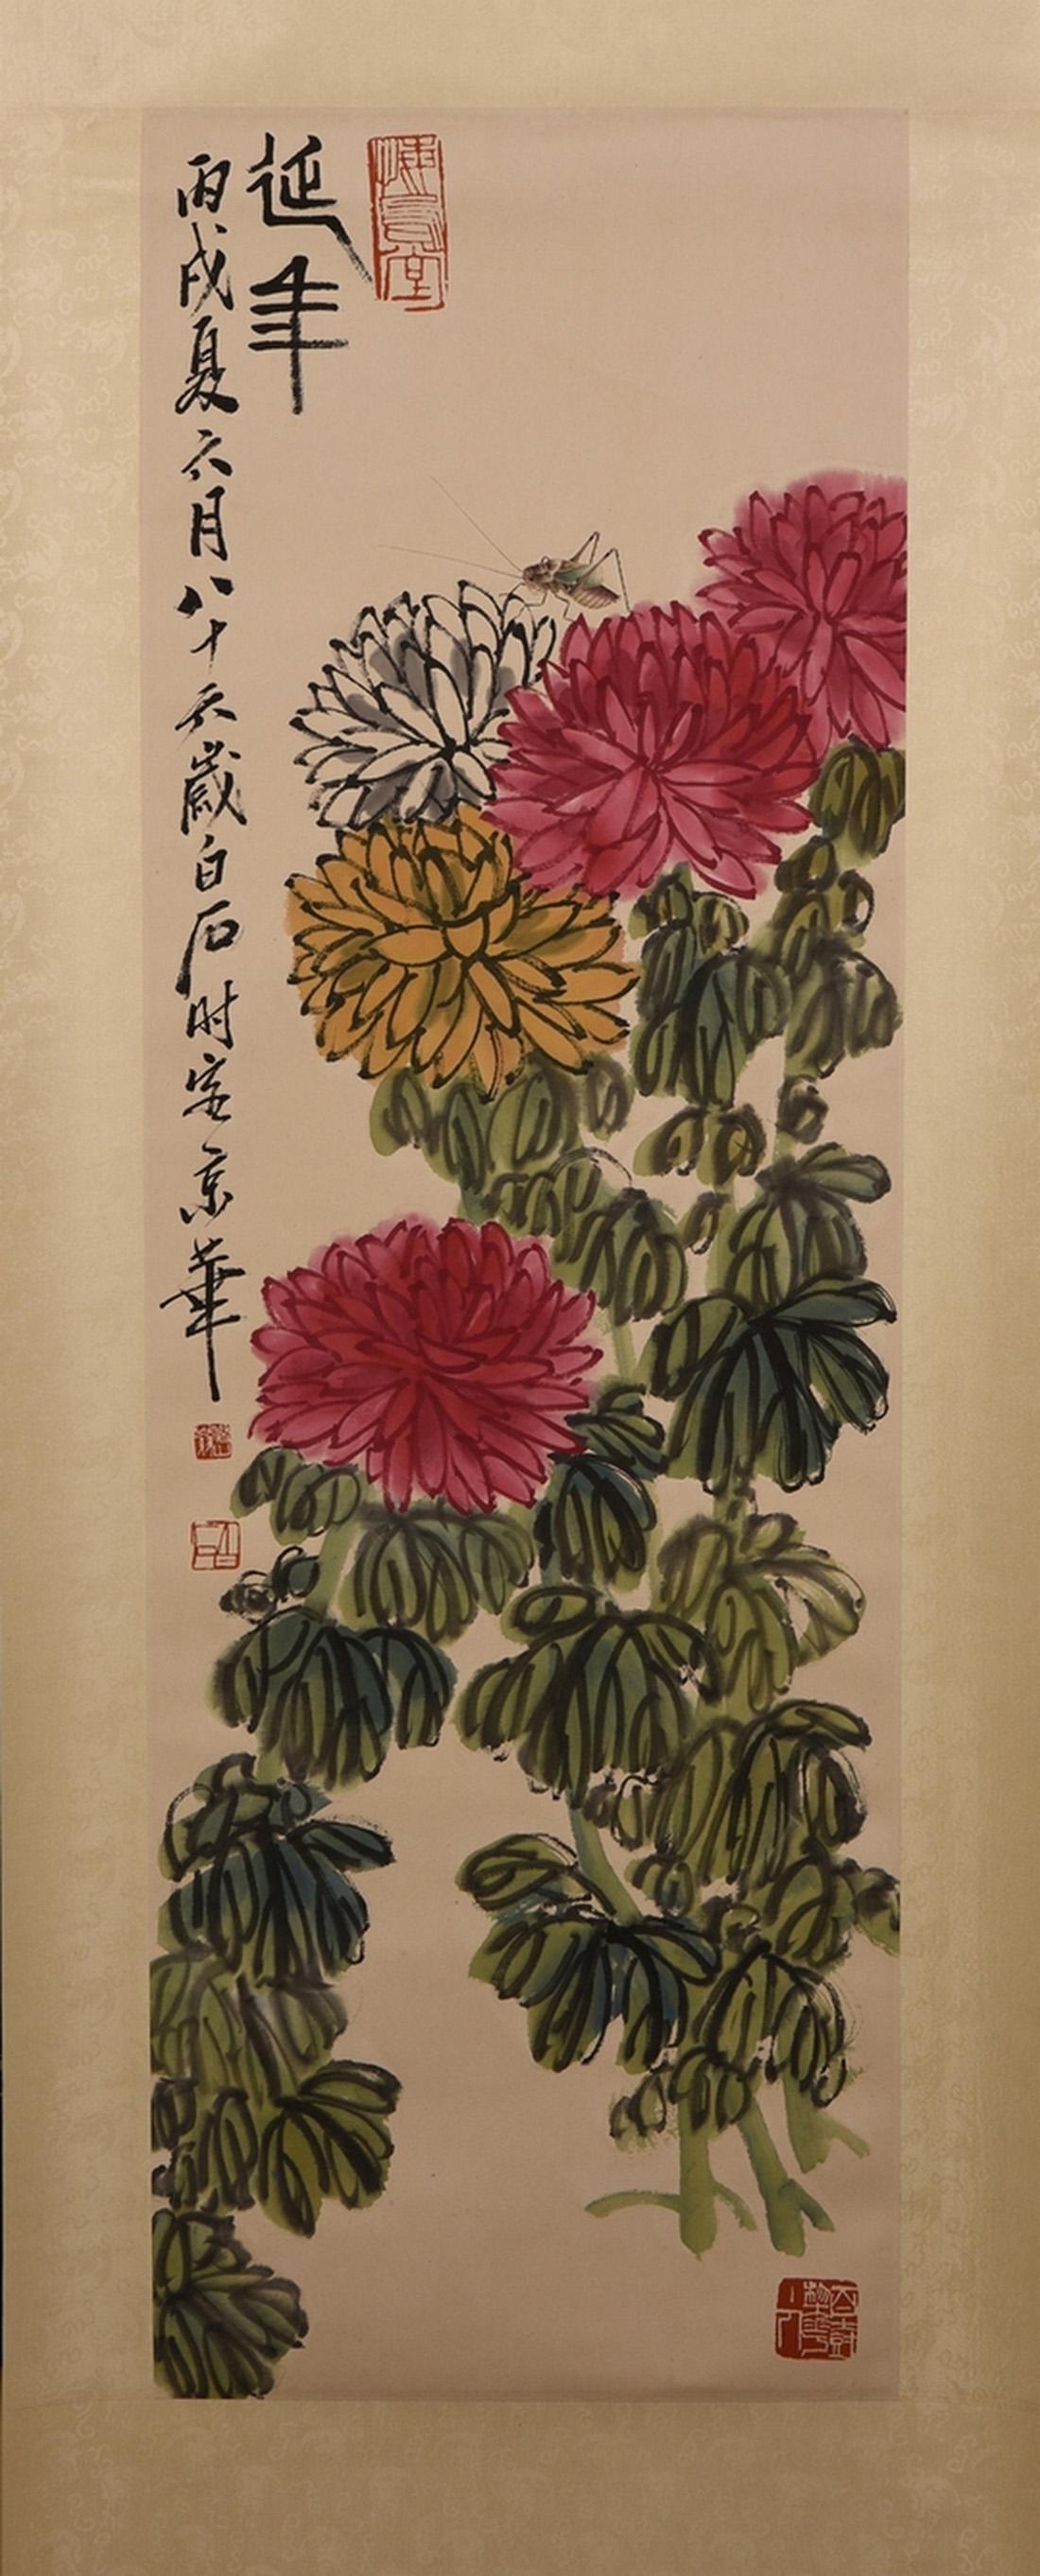 延年
丙戌夏六月八十六歲白石时客京華